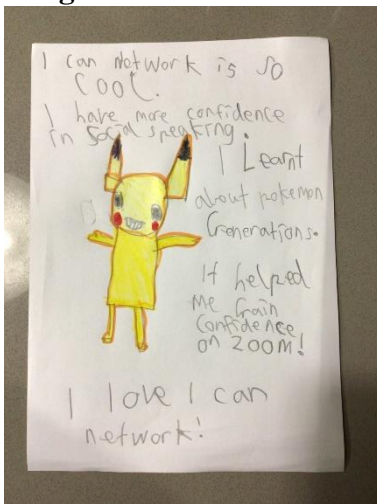 I can Network is so
COOL.
I have more confidence
in Social speaking.
I Learnt
about pokemon
Generations.
It helped
Me Gain
Confidence
on ZOOM!
I love I can
network!